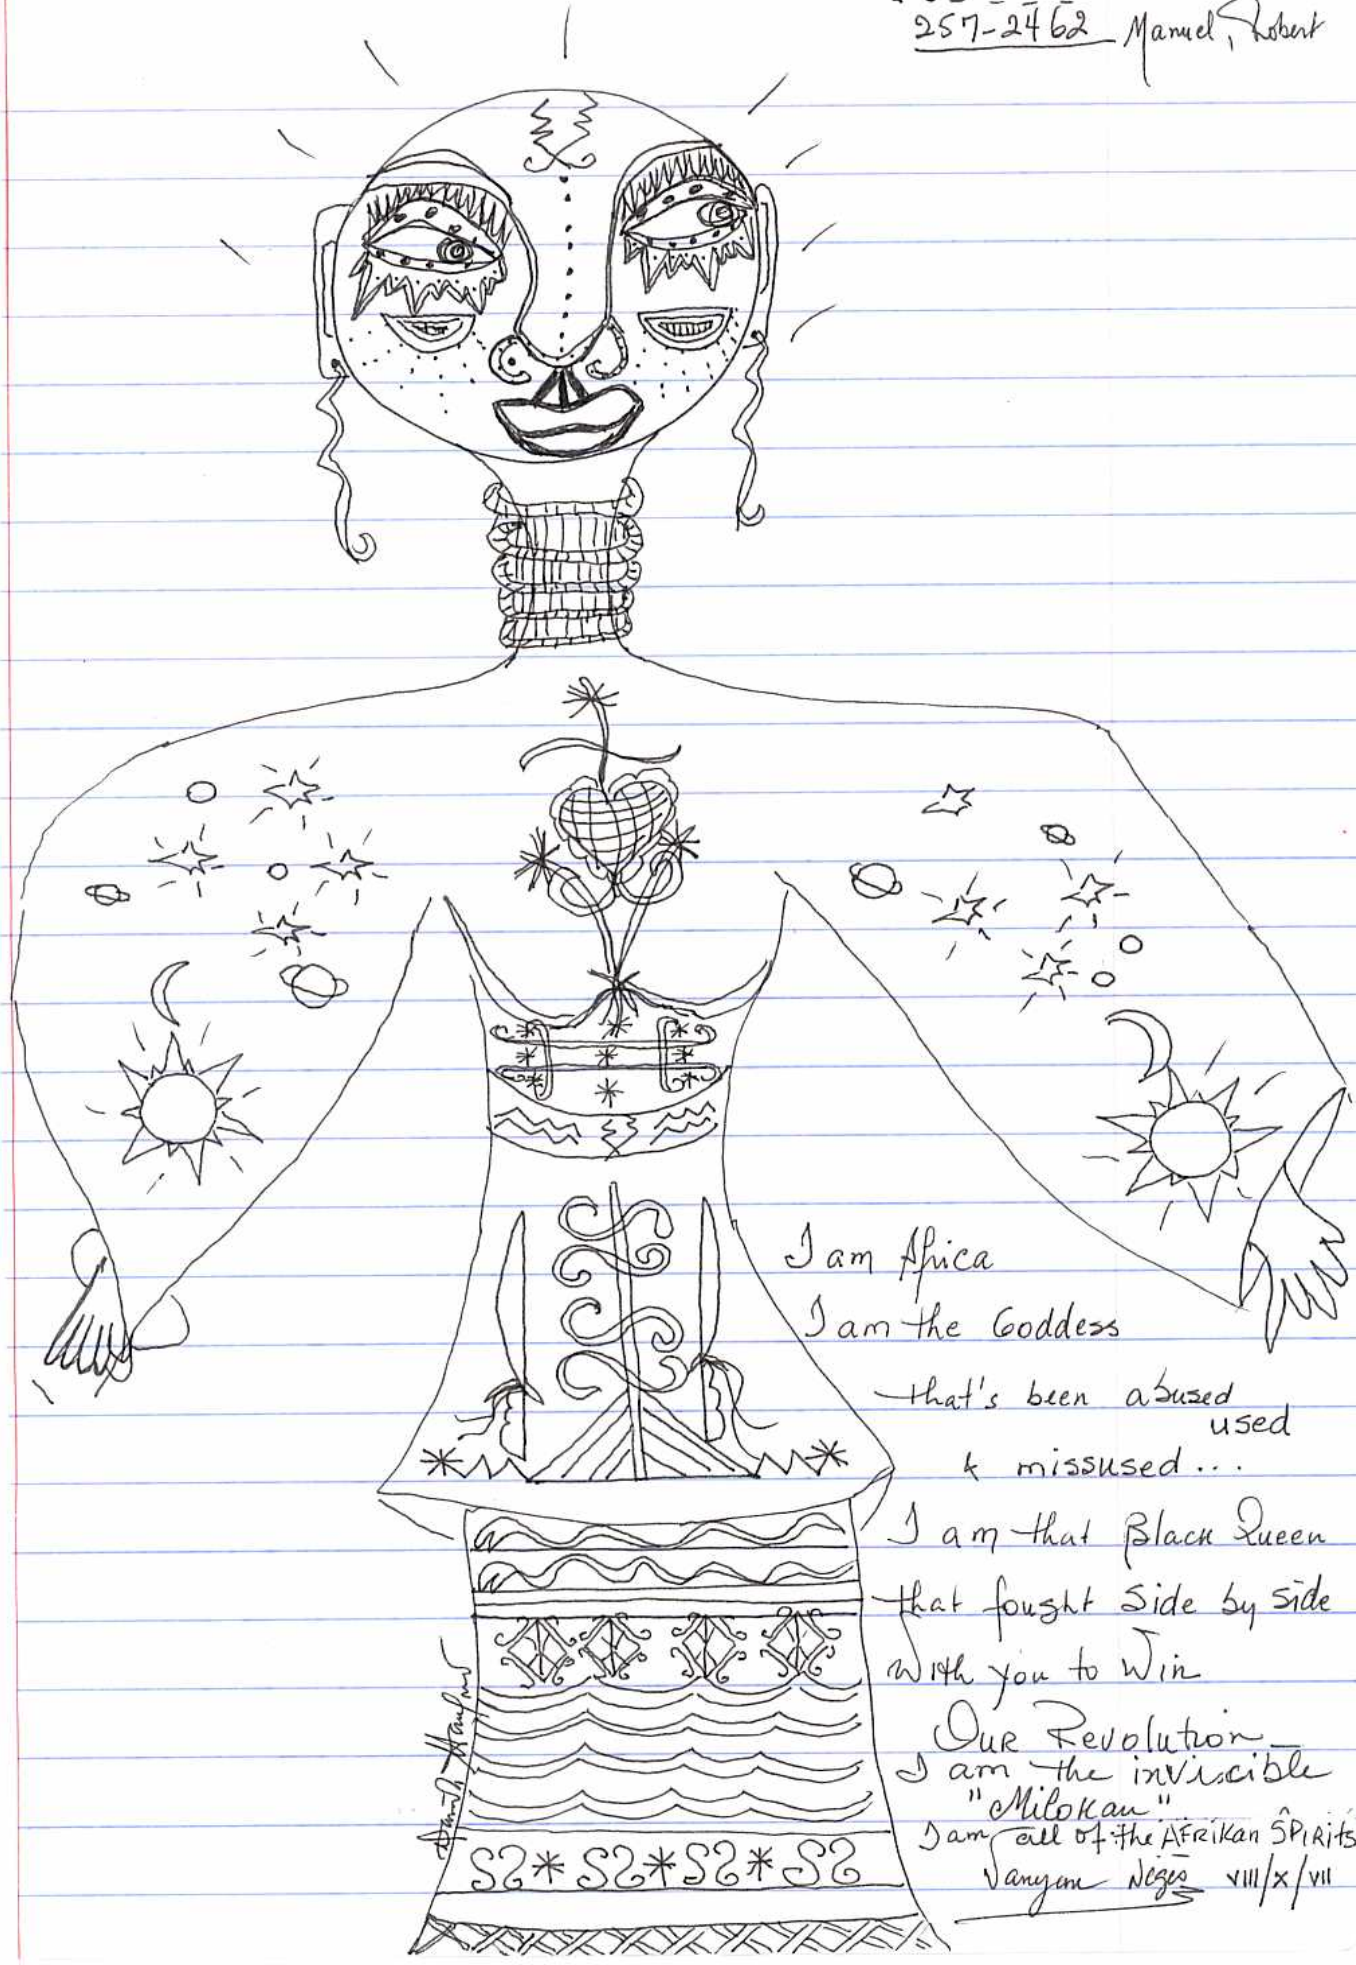 257-2462 Manuel, Robert
I am Africa
I am the Goddess
that's been abused
used
& missused...
I am that Black Queen
that fought side by side
With you to Win
Our Revolution
I am the inviscible
"Milokan"
I am all of the AFRikan SPIRits
VIII/X/VII
SS*SS*SS*SS